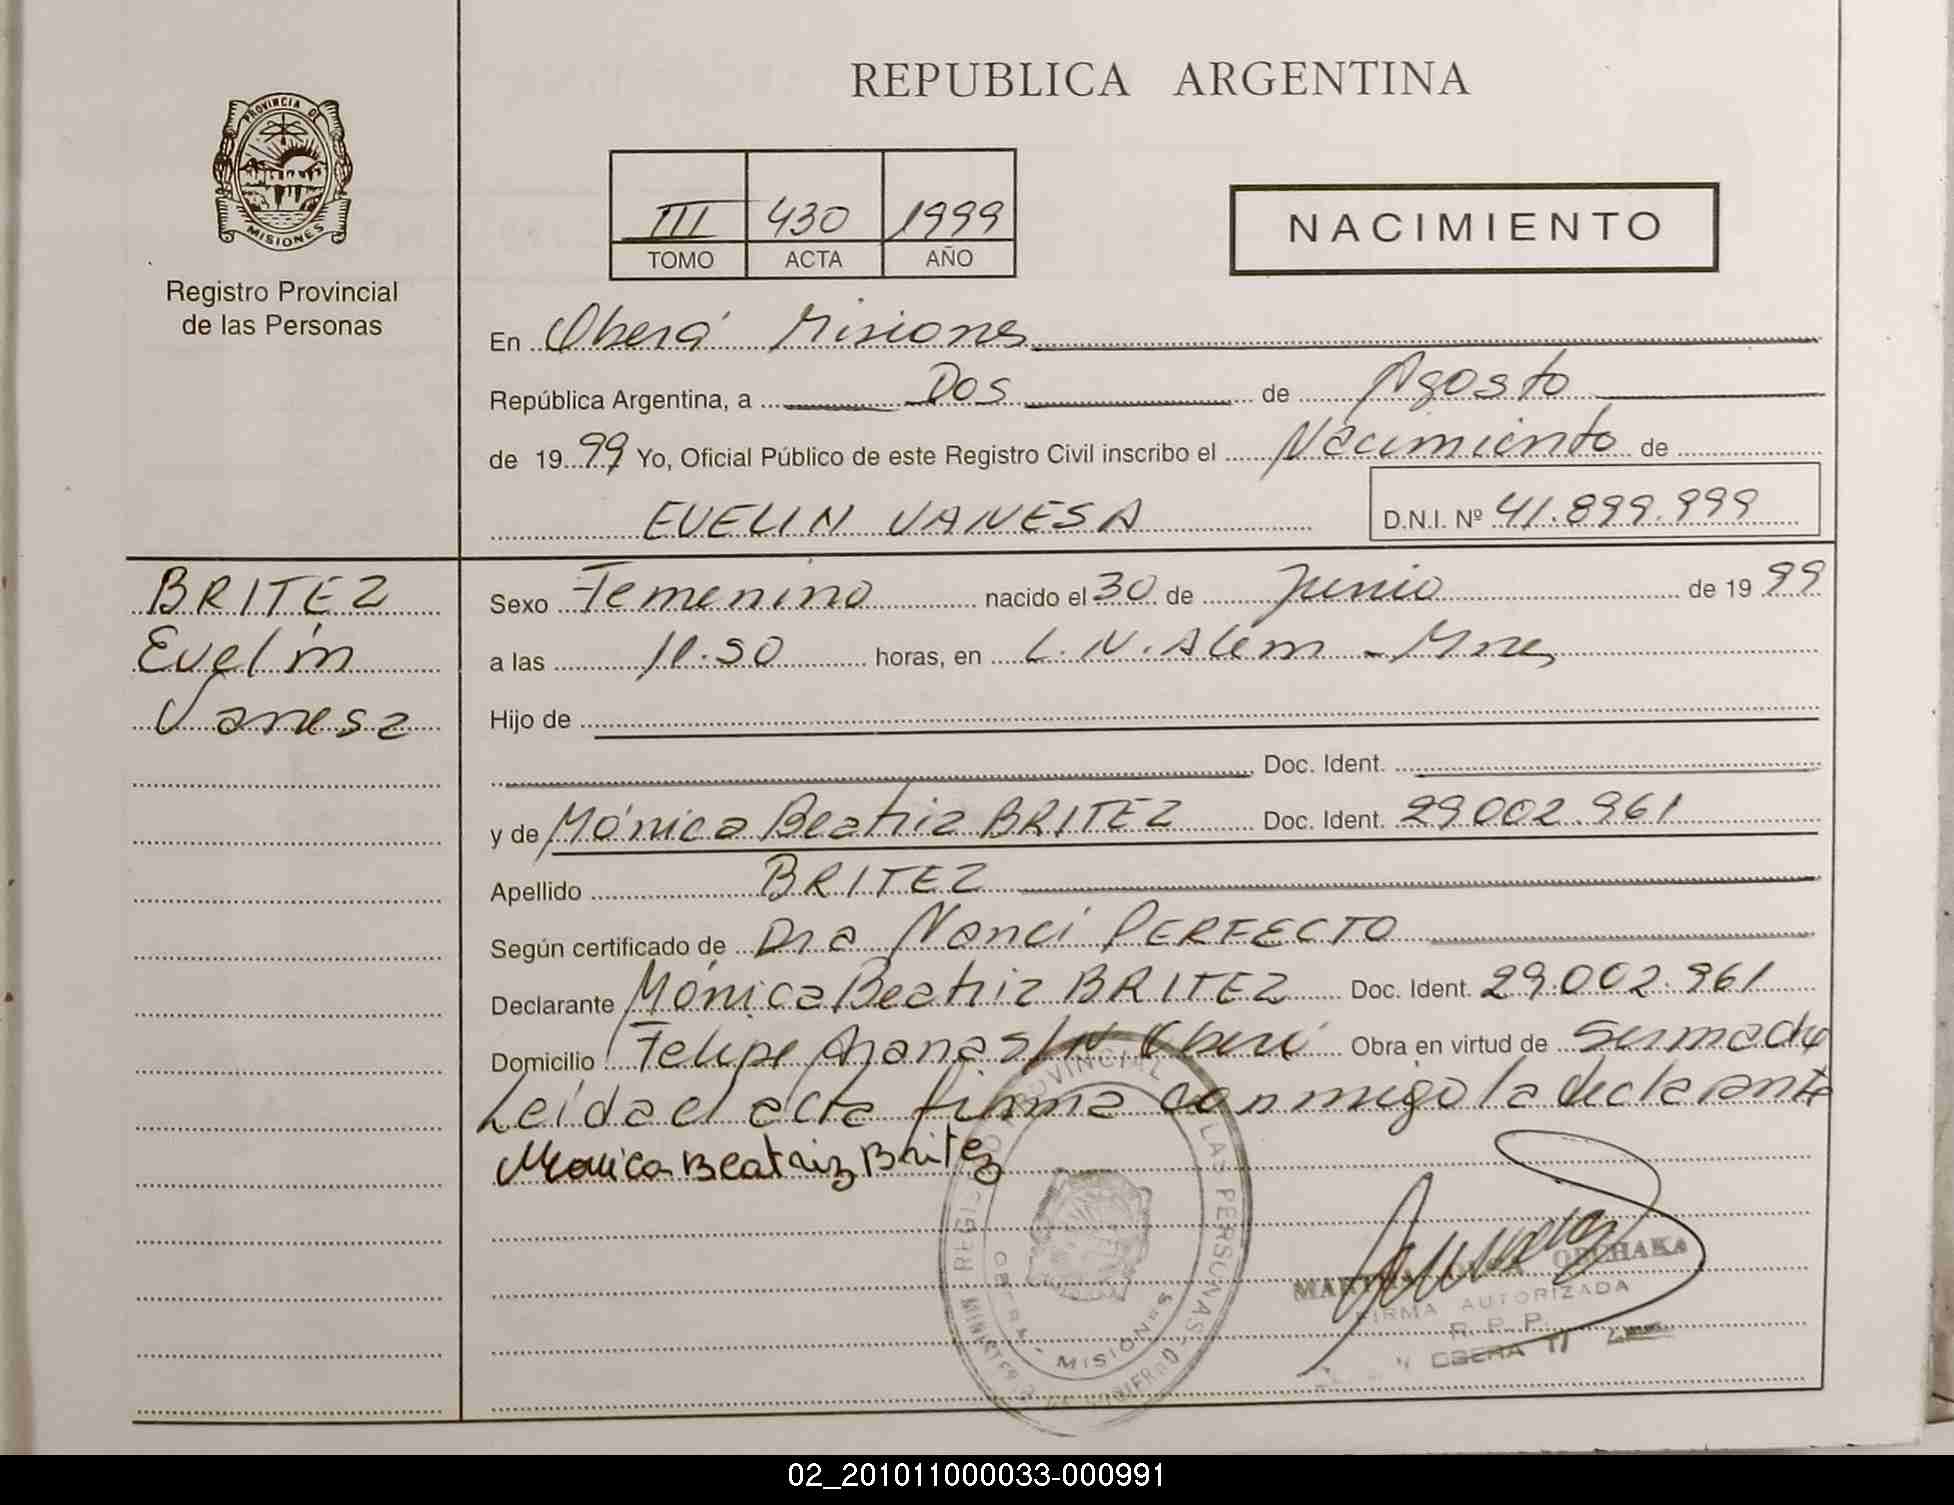 REPUBLICA ARGENTINA
PROVINCIA DE
MISIONES
Registro Provincial
de las Personas
III 430 1999
TOMO ACTA AÑO
NACIMIENTO
En Oberá Misiones
República Argentina, a Dos de Agosto
de 1999 Yo, Oficial Público de este Registro Civil inscribo el Nacimiento de
EVELIN VANESA D.N.I. Nº 41.899.999
BRITEZ
Evelin
Vanesa
Sexo Femenino nacido el 30 de Junio de 1999
a las 11.50 horas, en L.N.Alem - Mnes
Hijo de
Doc. Ident.
y de Mónica Beatriz BRITEZ Doc. Ident. 29.002.961
Apellido BRITEZ
Según certificado de Dra Nanci PERFECTO
Declarante Mónica Beatriz BRITEZ Doc. Ident. 29.002.961
Domicilio Felipe S/N Oberá Obra en virtud de ser madre
Leída el acta firma conmigo la declarante
Monica Beatriz Britez
PROVINCIAL
LAS PERSONAS
MISIONES
FIRMA AUTORIZADA
R. P. P.
OBERA
02_201011000033-000991